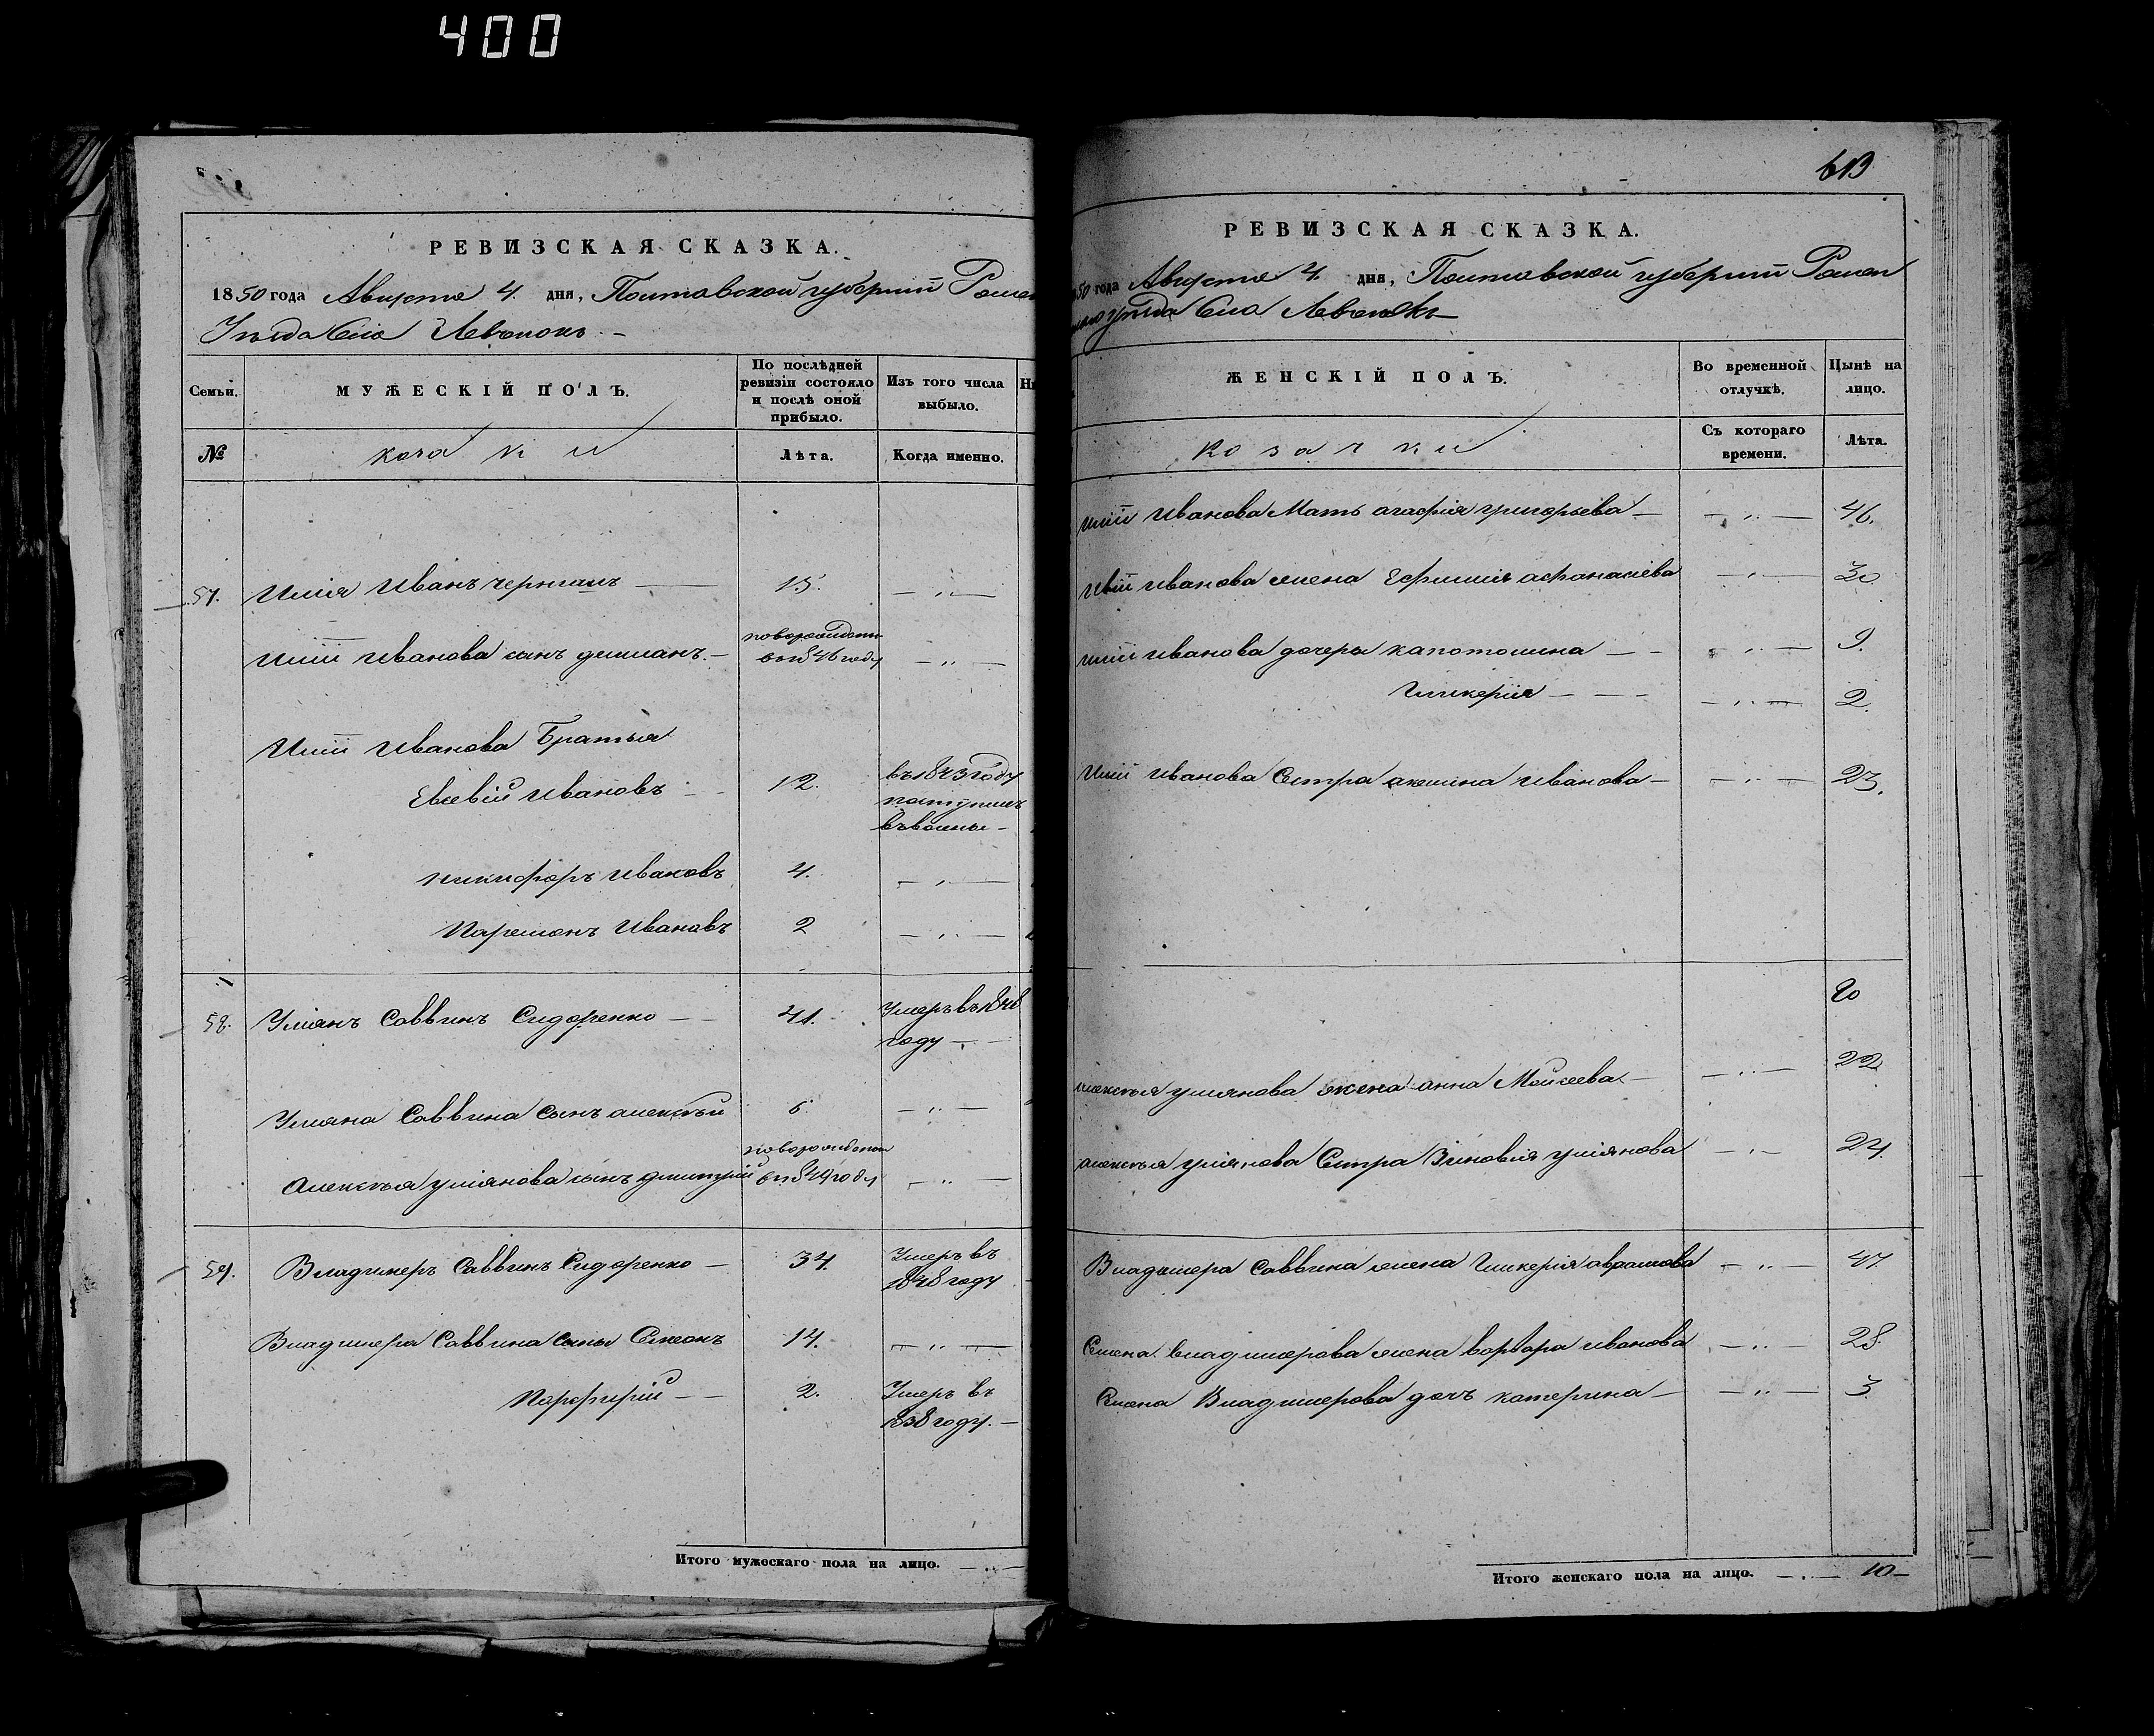 400
РЕВИЗСКАЯ СКАЗКА.
1850 года Августа 4. дня, Полтавской губерніи Ромен
Уѣзда Села
Семьи.
МУЖЕСКІЙ ПОЛЪ.
По послѣдней ревизіи состояло и послѣ оной прибыло.
Изъ того числа выбыло.
№
козаки
Лѣта.
Когда именно.
57. Илія Иванъ 15. — „ —
Иліи Иванова сынъ Демианъ. — новорожденъ в 1846 году — „ —
Иліи Иванова Братья
Евсевій Ивановъ 12. въ 1843 году поступилъ
Никифоръ Ивановъ 4. — „ —
Парамонъ Ивановъ 2 — „ —
58. Уліянъ Саввинъ Сидоренко — 41. Умеръ въ 1848 году —
Уліяна Саввина Сынъ алексѣй 6 — „ —
Алексѣя уліянова сынъ дмитрій новорожденъ в 1849 году — „ —
59. Владимеръ Саввинъ Сидоренко — 34. Умеръ въ 1848 году
Владимера Саввина сыны Симеонъ 14. — „ —
Порфирій — 2. Умеръ въ 1838 году. —
Итого мужескаго пола на лицо. — „ —
613
РЕВИЗСКАЯ СКАЗКА.
50 года Августа 4. дня, Полтавской губерніи Ромен
уѣзда Села
ЖЕНСКІЙ ПОЛЪ.
Во временной отлучкѣ.
Цынѣ на лицо.
козачки
Съ котораго времени.
Лѣта.
Иліи Иванова Мать агафія григорьева — — „ — 46.
Иліи Иванова жена Ефимія афанасіева — „ — 30
Иліи Иванова дочери — — „ — 9.
Гликерія — — — „ — 2.
Иліи Иванова Сестра акилина Иванова — — „ — 23.
20
алексѣя уліянова жена анна Моисеева — — „ — 22
алексѣя уліянова Сестра Зиновія уліянова — „ — 24.
Владимера Саввина жена Гликерія аврамова — „ — 47.
Семена владимерова жена варвара иванова — „ — 28.
Семена Владимерова дочь катерина — — „ — 3
Итого женскаго пола на лицо. — „ — 10 —